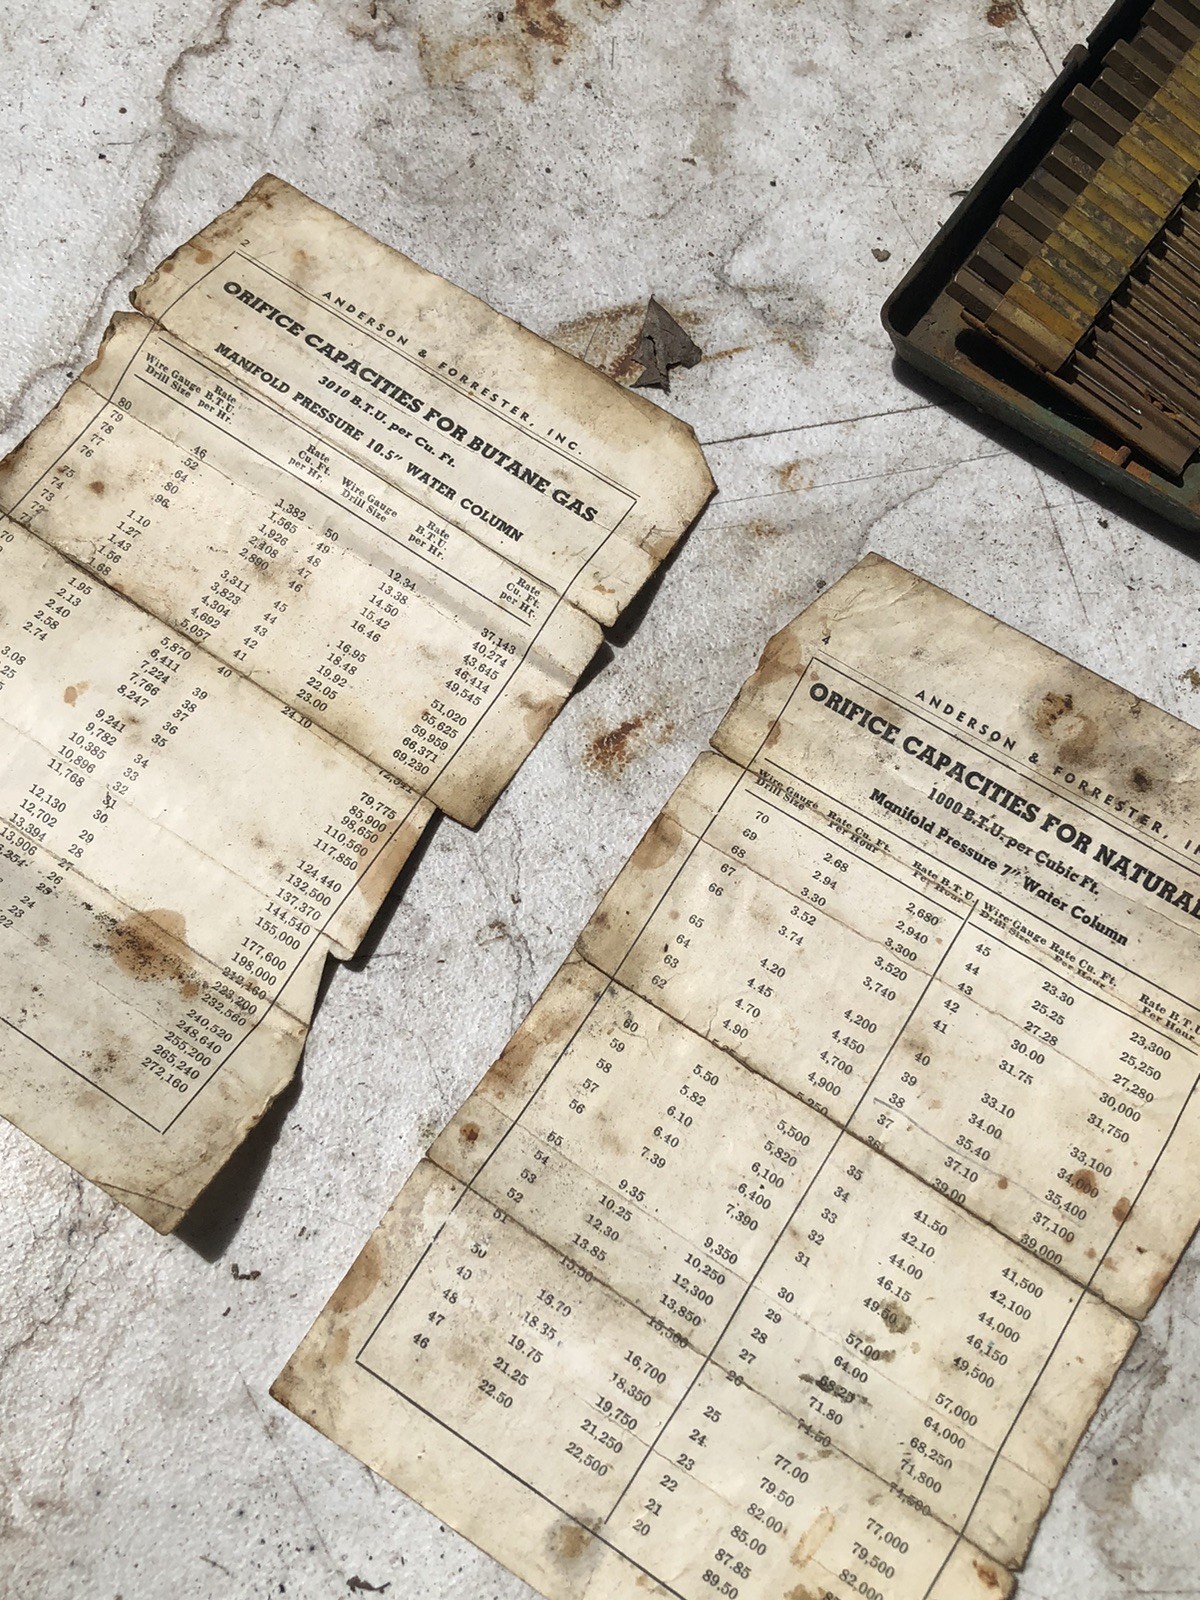 2
ANDERSON & FORRESTER, INC.
ORIFICE CAPACITIES FOR BUTANE GAS
3010 B.T.U. per Cu. Ft.
MANIFOLD PRESSURE 10.5" WATER COLUMN
Wire Gauge Drill Size Rate B.T.U. per Hr. Rate Cu. Ft. per Hr. Wire Gauge Drill Size Rate B.T.U. per Hr. Rate Cu. Ft. per Hr.
80 .46 1,382 50 12.34 37,143
79 .52 1,565 49 13.38 40,274
78 .64 1,926 48 14.50 43,645
77 .80 2,408 47 15.42 46,414
76 .96 2,890 46 16.46 49,545
75 1.10 3,311 45 16.95 51,020
74 1.27 3,823 44 18.48 55,625
73 1.43 4,304 43 19.92 59,959
72 1.56 4,692 42 22.05 66,371
71 1.68 5,057 41 23.00 69,230
70 1.95 5,870 40 24.10
2.13 6,411 39 79,775
2.40 7,224 38 85,900
2.58 7,766 37 98,650
2.74 8,247 36 110,560
3.08 9,241 35 117,850
9,782 34 124,440
10,385 33 132,500
10,896 32 137,370
11,768 31 144,540
12,130 30 155,000
12,702 29 177,600
13,394 28 198,000
13,906 27 212,160
26 223,200
25 232,560
24 240,520
23 248,640
22 255,200
265,240
272,160
4
ANDERSON & FORRESTER,
ORIFICE CAPACITIES FOR NATURAL
1000 B.T.U. per Cubic Ft.
Manifold Pressure 7" Water Column
Wire Gauge Drill Size Rate Cu. Ft. Per Hour Rate B.T.U. Per Hour Wire Gauge Drill Size Rate Cu. Ft. Per Hour Rate B.T.U. Per Hour
70 2.68 2,680 45 23.30 23,300
69 2.94 2,940 44 25.25 25,250
68 3.30 3,300 43 27.28 27,280
67 3.52 3,520 42 30.00 30,000
66 3.74 3,740 41 31.75 31,750
65 4.20 4,200 40 33.10 33,100
64 4.45 4,450 39 34.00 34,000
63 4.70 4,700 38 35.40 35,400
62 4.90 4,900 37 37.10 37,100
5,250 36 39.00 39,000
60 5.50 5,500 35 41.50 41,500
59 5.82 5,820 34 42.10 42,100
58 6.10 6,100 33 44.00 44,000
57 6.40 6,400 32 46.15 46,150
56 7.39 7,390 31 49.50 49,500
55 9.35 9,350 30 57.00 57,000
54 10.25 10,250 29 64.00 64,000
53 12.30 12,300 28 68.25 68,250
52 13.85 13,850 27 71.80 71,800
51 15.30 15,300 26 74.50 74,500
50 16,700 25 77.00 77,000
49 18.35 18,350 24 79.50 79,500
48 19.75 19,750 23 82.00 82,000
47 21.25 21,250 22 85.00
46 22.50 22,500 21 87.85
20 89.50